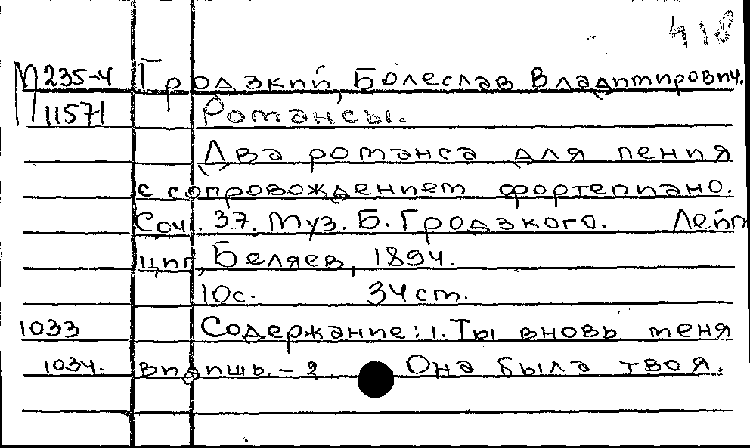 418
М 235-4 Гродзкий, Болеслав Владимирович.
11571 Романсы.
Два романса для пения
с сопровождением фортепиано.
Соч. 37. Муз. Б. Гродзкого. Лейп
циг, Беляев, 1894.
10с. 34см.
1033 Содержание: 1. Ты вновь меня
1034. видишь. - 2. Она была твоя.